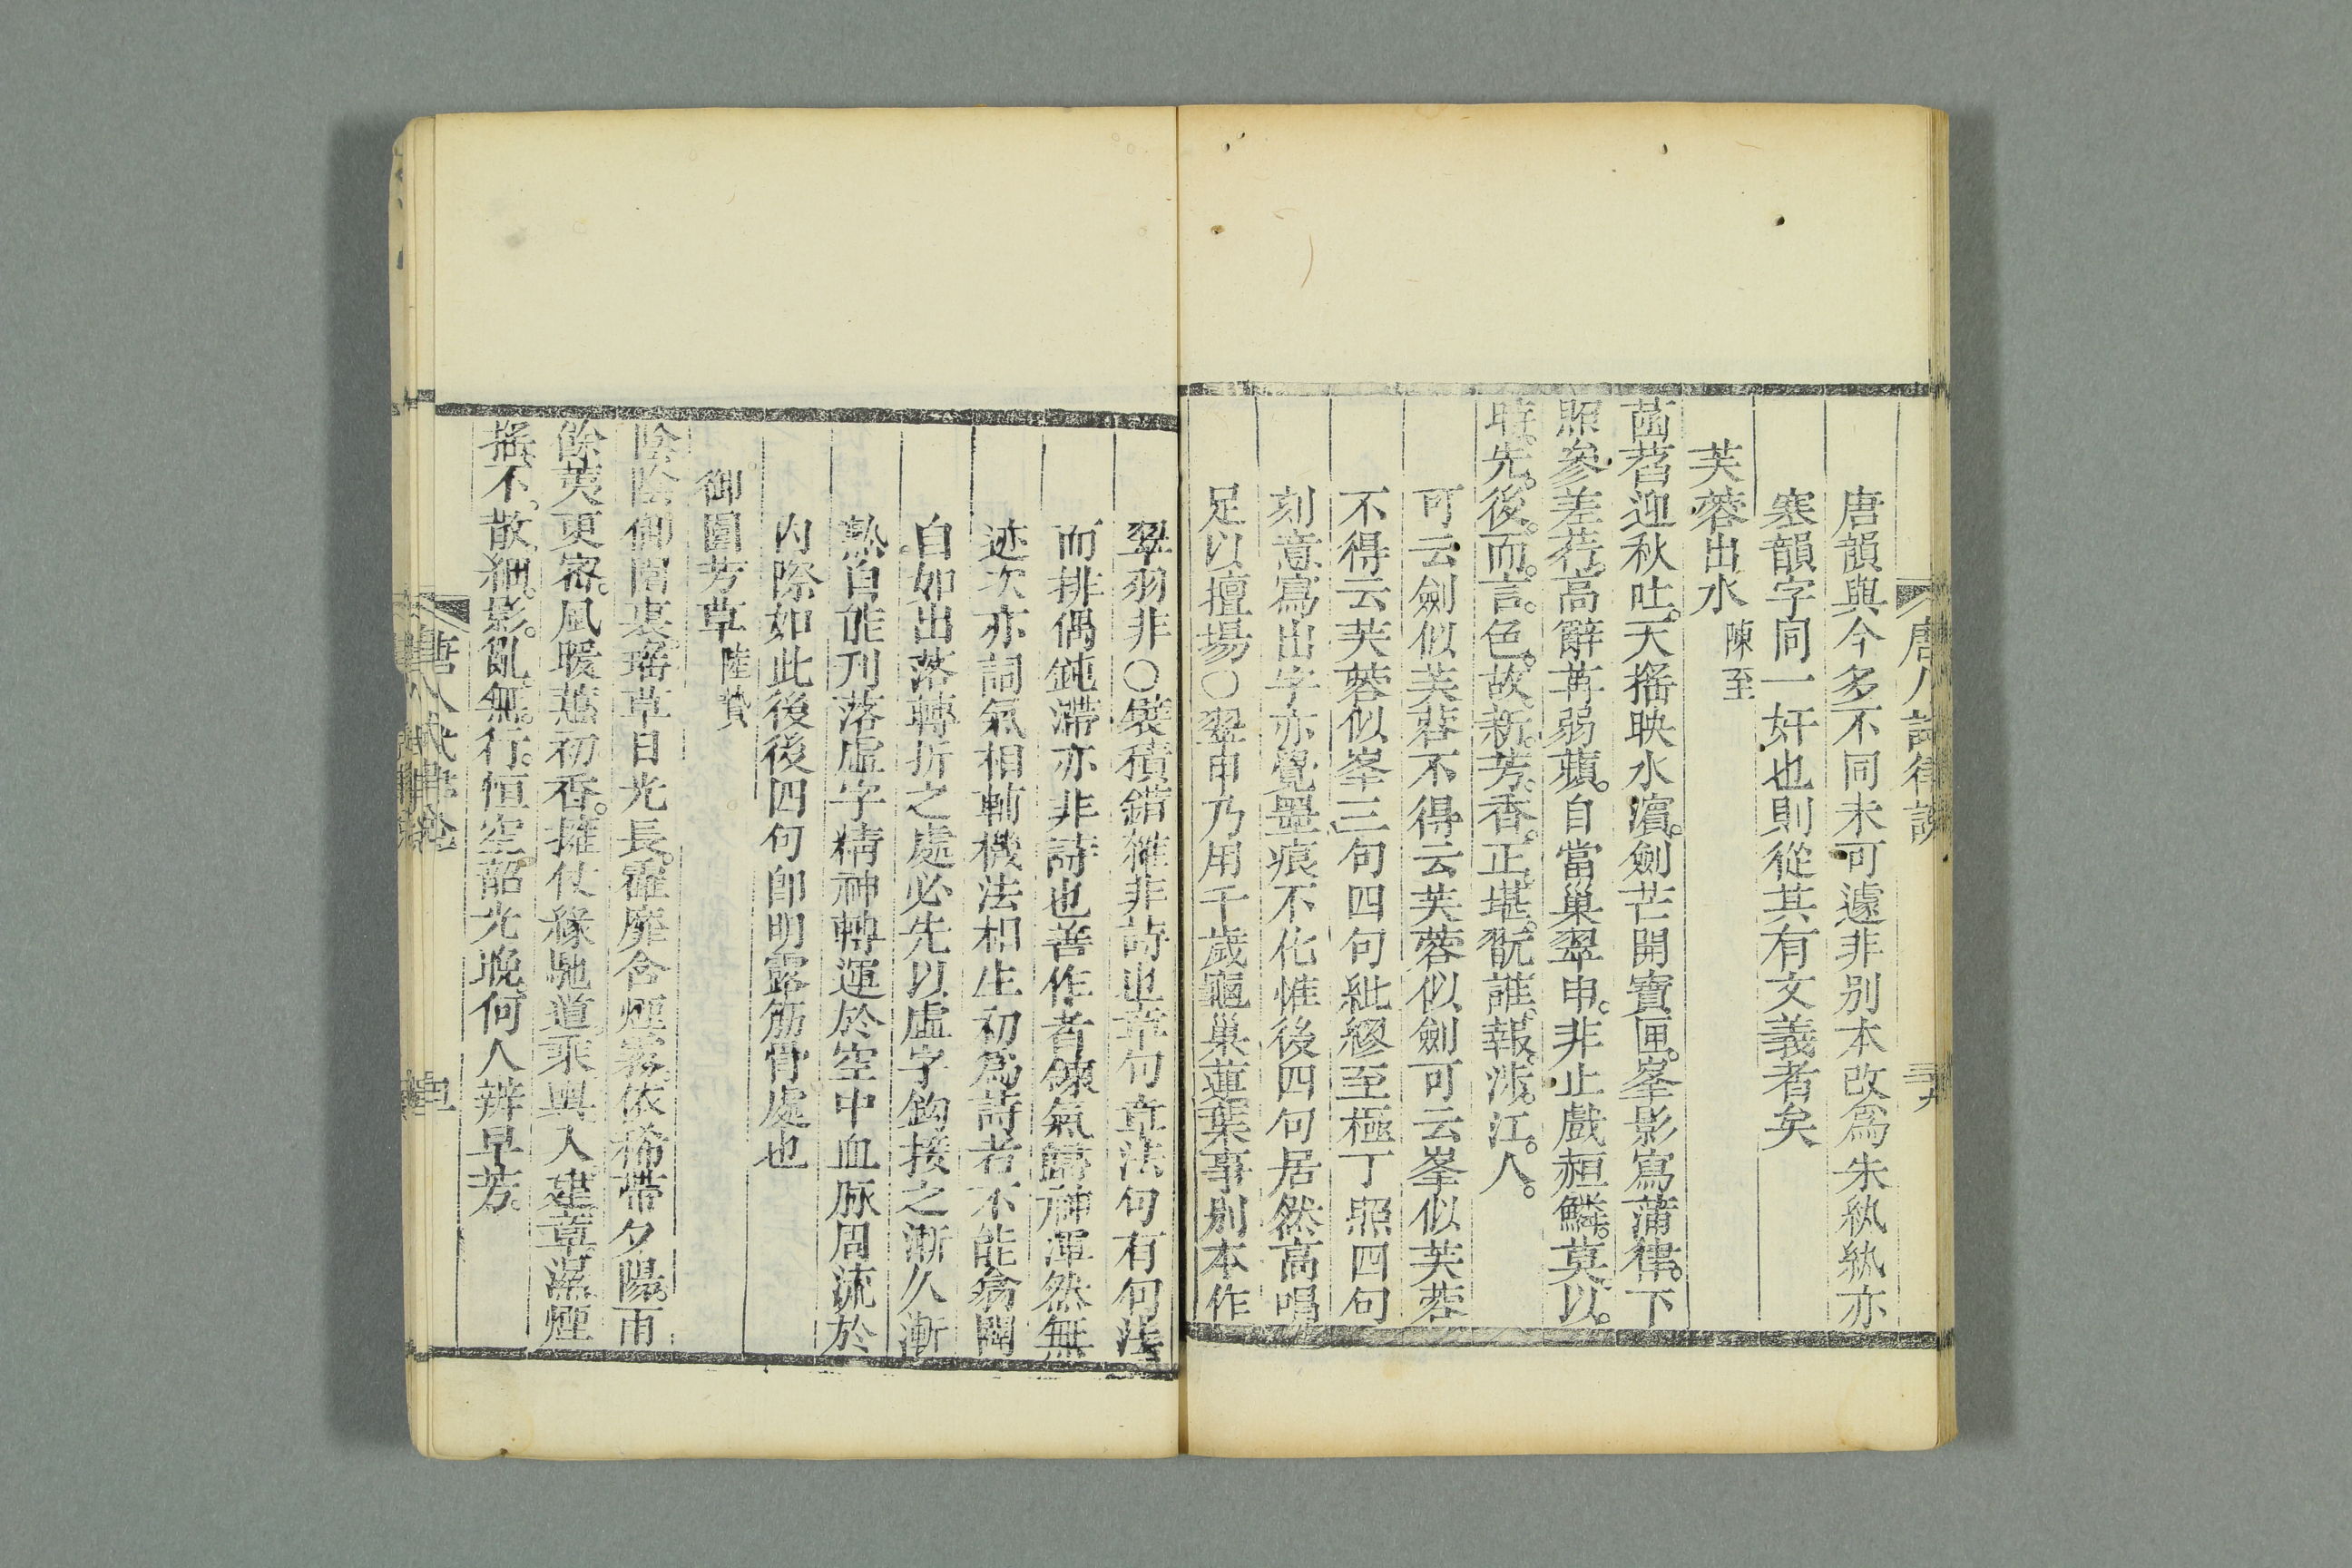 唐韻與今多不同未可遽非别本改爲朱紈紈亦
寒韻字同一奸也則從其有文義者矣
芙蓉出水陳至
菡萏迎秋吐。天搖映水濵。劍芒開寶匣。峯影寫蒲律。下
照參差荇。高辭苒弱蘋。自當巢翠甲。非止戲赬鱗。莫以。
時。先。後。而。言。色。故。新。芳。香。正。堪。翫。誰。報。涉。江。人。
可云劍似芙蓉不得云芙蓉似劍可云峯似芙蓉
不得云芙蓉似峯三句四句紕繆至極丁照四句
刻意寫出字亦覺墨痕不化惟後四句居然高唱
足以擅場○翠甲乃用千歲龜巢蓮葉事别本作
翠羽非○襞積錯雜非詩也章句章法句有句法
而排偶鈍滯亦非詩也善作者鍊氣歸神渾然無
迹次亦詞氣相輔機法相生初爲詩者不能翕闢
自如出落轉折之處必先以虛字鈎接之漸久漸
熟自能刋落虛字精神轉運於空中血脉周流於
内際如此後後四句卽明露筋骨處也
御園芳草陸贄
陰陰御園裏。瑶草日光長。靃靡含煙霧。依稀帶夕陽。雨
餘荑更密。風暖蕙初香。擁仗緣馳道。乘輿入建章。濕煙
摇。不。散。細。影。亂。無。行。恒空韶光晚。何人辨早芳。
唐人試律說
三九
唐人試律說